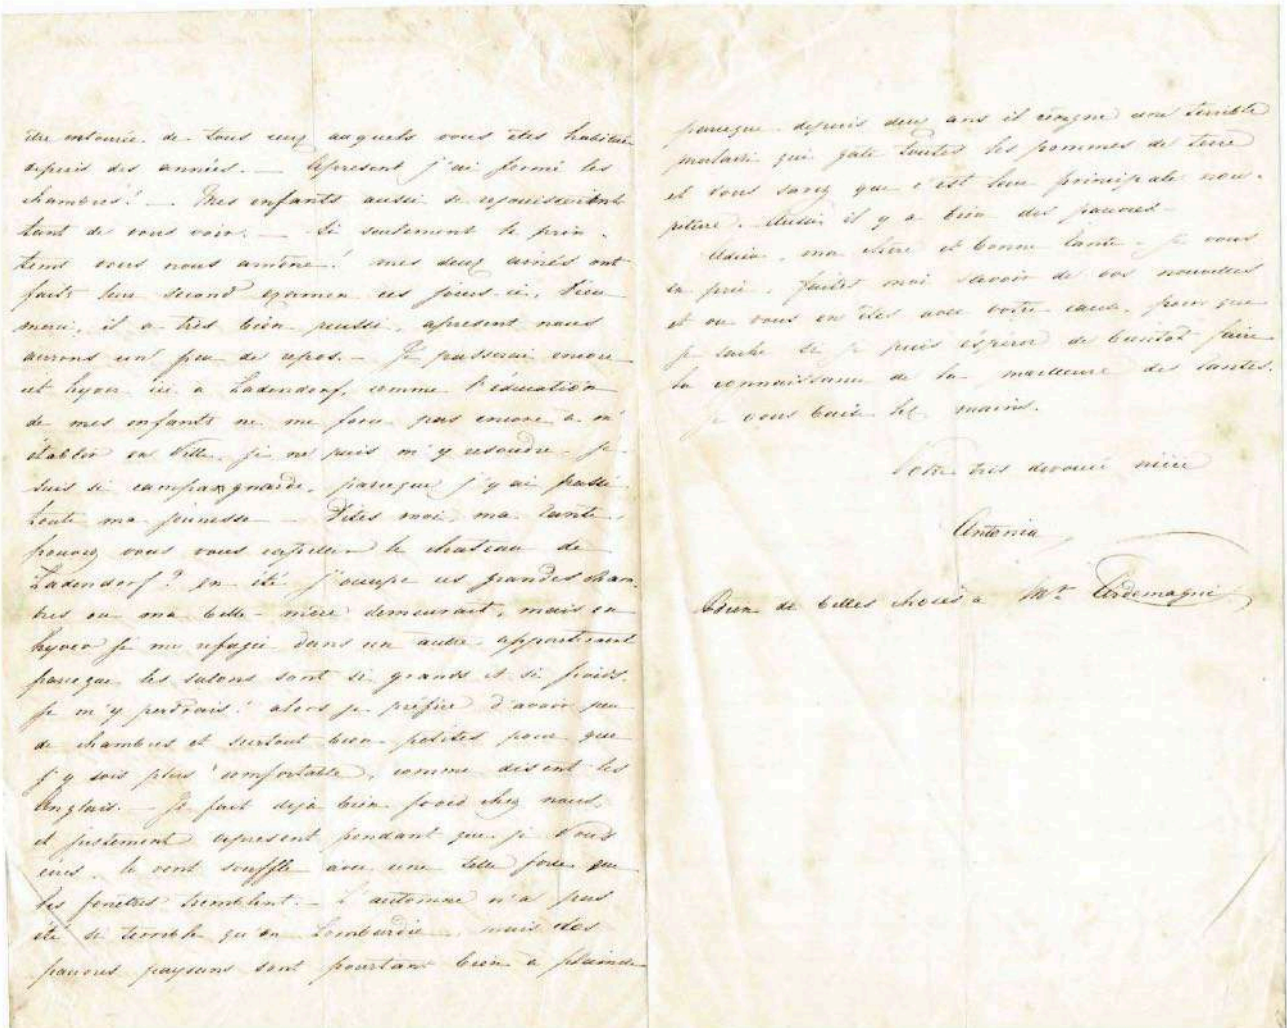 être entourée de tous ceux auquels vous êtes habituée
depuis des années. — Apresent j'ai fermé les
chambres! — Mes enfants aussi se rejouissaient
tant de vous voir. — Si seulement le prin-
tems vous nous amène! mes deux ainés ont
faits leur second examen ces jours-ci, Dieu
merci, il a très bien reussi, apresent nous
aurons un peu de repos. — Je passerai encore
cet hyver ici a Ladendorf, comme l'éducation
de mes enfants ne me force pas encore a m'
établir en Ville, je ne puis m'y resoudre. Je
suis si campagnarde, parceque j'y ai passé
toute ma jeunesse — Dites moi, ma tante,
pouvez vous vous rapeller le chateau de
Ladendorf? en été j'occupe ces grandes cham-
bres ou ma belle-mère demeurait, mais en
hyver je me refugie dans un autre appartement
parceque les salons sont si grands et si froids.
Je m'y perdrais! alors je préfère d'avoir peu
de chambres et surtout bien petites pour que
j'y sois plus comfortable, comme disent les
Anglais. — Il fait dejà bien froid chez nous,
et justement apresent pendant que je Vous
écris, le vent souffle avec une telle force que
les fenetres tremblent. — L'automne n'a pas
été si terrible qu'en Lombardie, mais les
pauvres paysans sont pourtant bien à plaindre
parceque depuis deux ans il règne une terrible
maladie qui gate toutes les pommes de terre
et vous savez que c'est leur principale nou-
riture. Aussi il y a bien des pauvres —
Adieu, ma chère et bonne tante. Je vous
en prie, faites moi savoir de vos nouvelles
et ou vous en êtes avec votre cause, pour que
je sache si je puis éspérer de bientot faire
la connaissance de la meilleure des tantes.
Je vous baise les mains.
Votre très devouée nièce
Antonia
de belles choses a Mr. Ardemagni